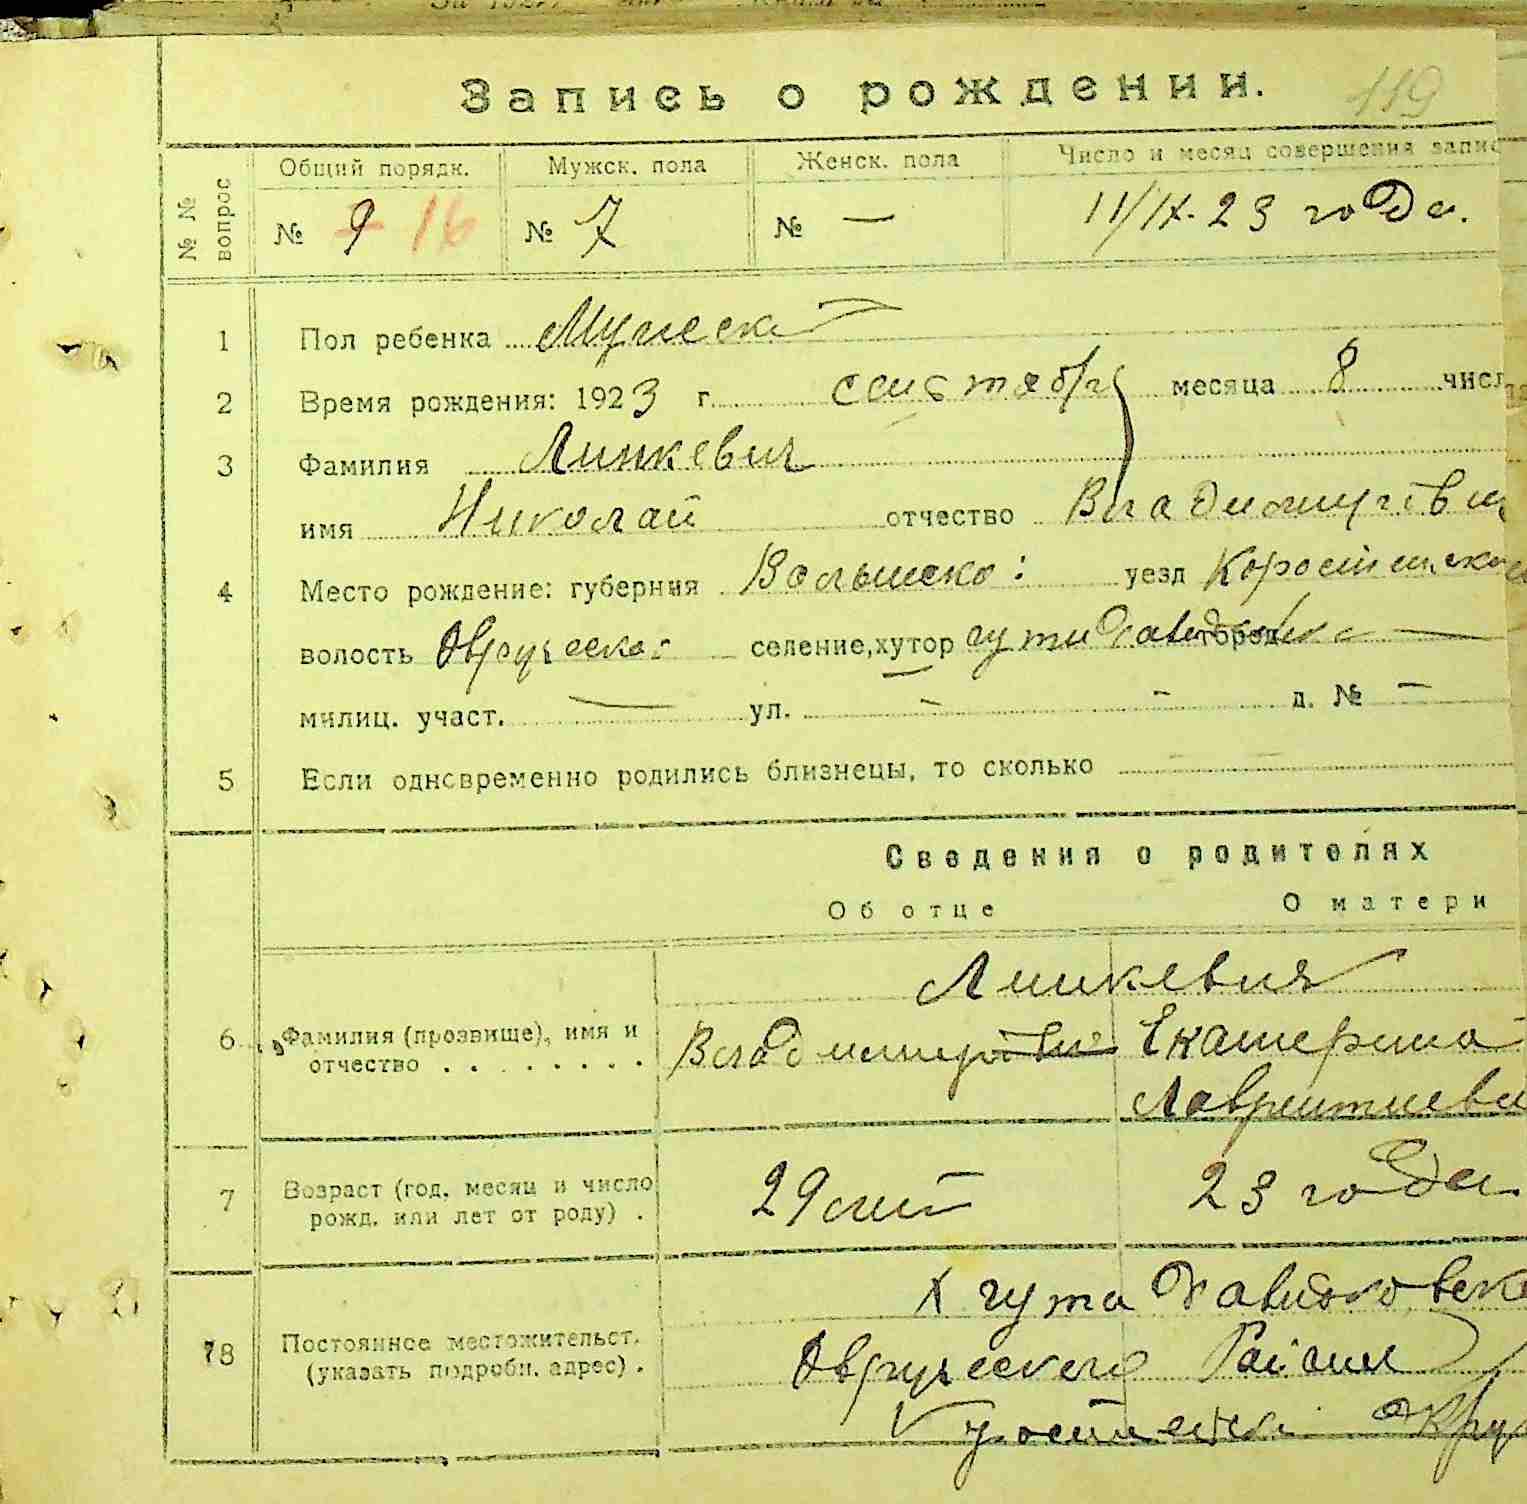 119
Запись о рождении.
№ № вопрос
Общий порядк. Мужск. пола Женск. пола Число и месяц совершения запис
№ 9 16 № 7 № — 11/IX-23 года.
1 Пол ребенка Мужеск
2 Время рождения: 1923 г сентября месяца 8 числ
3 Фамилия Линкевич
имя Николай отчество Владимирович
4 Место рождение: губерния Волынско: уезд Коростенско
волость Овручско: селение, хутор гута город —
милиц. участ. — ул. — - д. № —
5 Если одновременно родились близнецы, то сколько
Сведения о родителях
Об отце О матери
Линкевич
6 Фамилия (прозвище), имя и Владимир Екатерина
отчество . . . . . . . .
Лаврентиевна
7 Возраст (год, месяц и число 29 лет 23 года
рожд. или лет от роду) .
Х гута
78 Постоянное местожительст. Овручского Район
(указать подробн. адрес) .
Округ